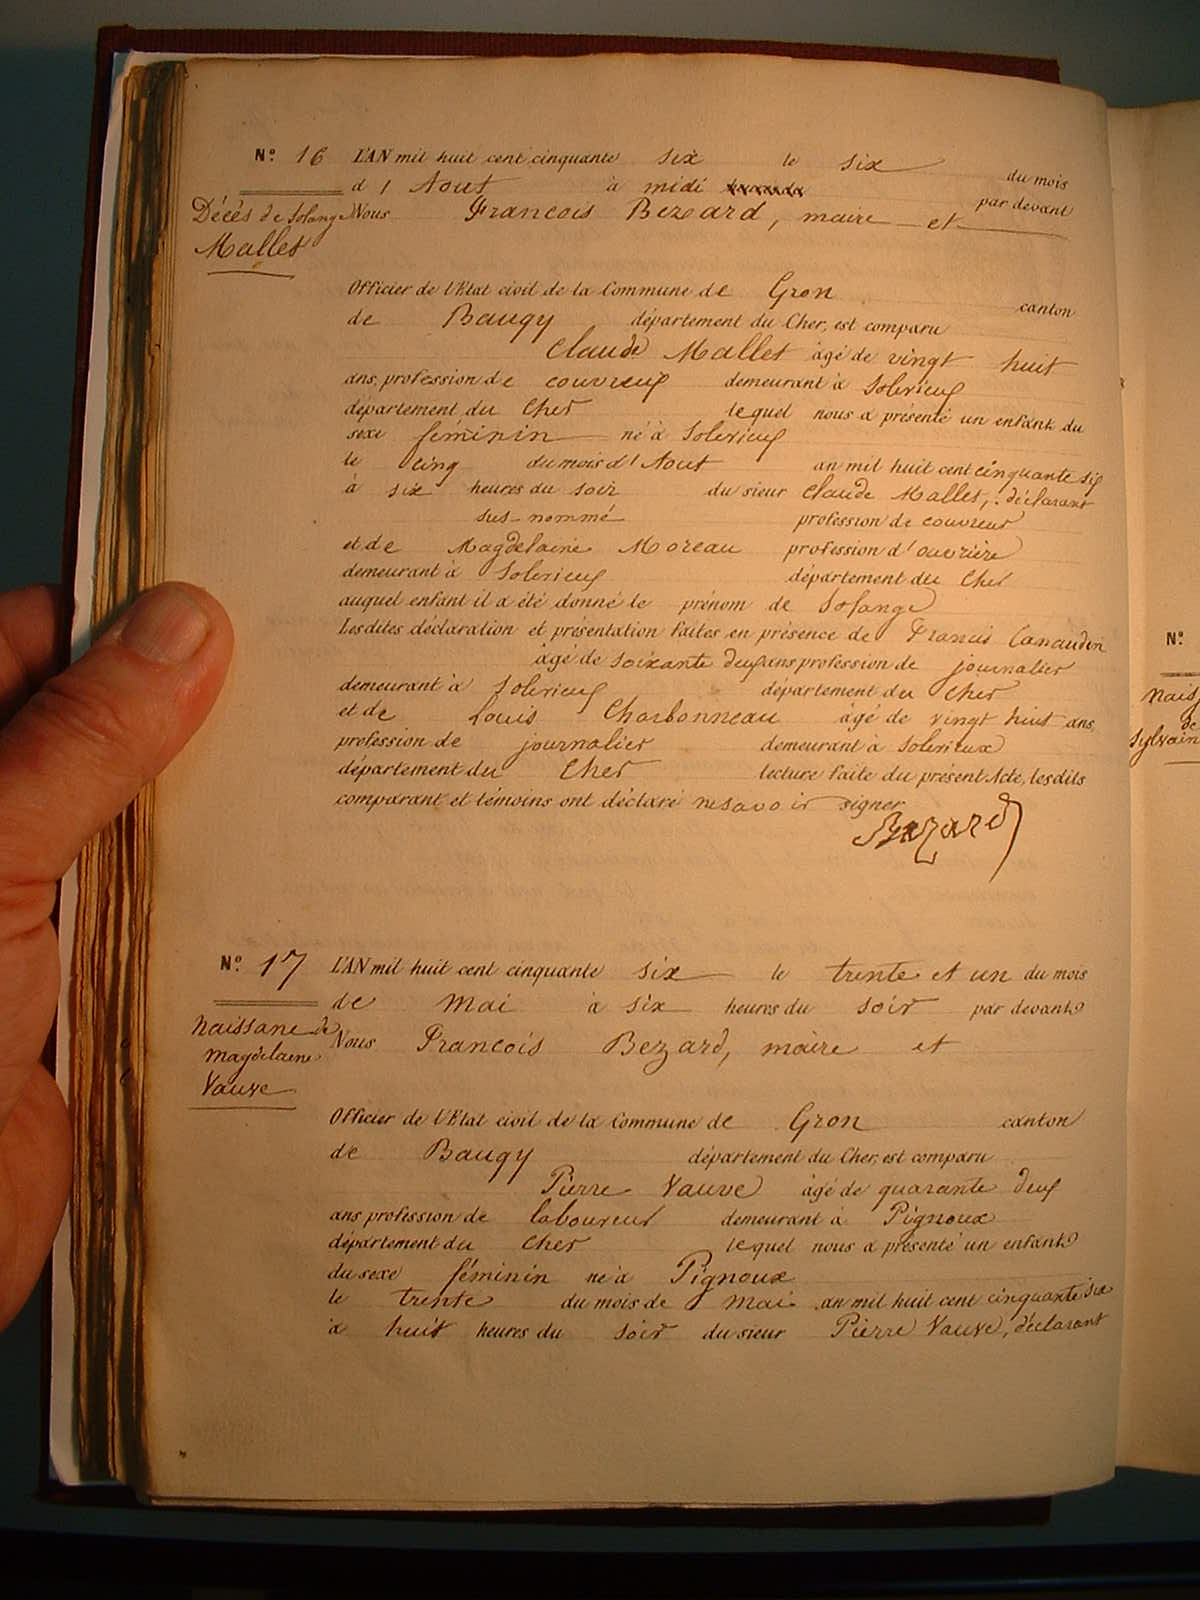 N° 16 L'AN mil huit cent cinquante six le six du mois
d'Aout à midi par devant
Décès de Solange
Mallet
Nous Francois Bezard, maire et
Officier de l'Etat civil de la Commune de Gron canton
de Baugy département du Cher, est comparu
Claude Mallet âgé de vingt huit
ans, profession de couvreur demeurant à Solerieux
département du Cher lequel nous a présenté un enfant du
sexe féminin né à Solerieux
le cinq du mois d'Aout an mil huit cent cinquante six
à six heures du soir du sieur Claude Mallet, déclarant
sus-nommé profession de couvreur
et de Magdelaine Moreau profession d'ouvrière
demeurant à Solerieux département du Cher
auquel enfant il a été donné le prénom de Solange
Lesdites déclaration et présentation faites en présence de Francis Canaudin
âgé de soixante deux ans profession de journalier
demeurant à Solerieux département du Cher
et de Louis Charbonneau âgé de vingt huit ans,
profession de journalier demeurant à Solerieux
département du Cher lecture faite du présent Acte, lesdits
comparant et témoins ont déclaré ne savoir signer
Bezard
N° 17 L'AN mil huit cent cinquante six le trente et un du mois
de Mai à six heures du soir par devant
Naissane de
Magdelaine
Vauve
Nous Francois Bezard, maire et
Officier de l'Etat civil de la Commune de Gron canton
de Baugy département du Cher, est comparu
Pierre Vauve âgé de quarante deux
ans profession de laboureur demeurant à Pignoux
département du Cher lequel nous a présenté un enfant
du sexe féminin né à Pignoux
le trente du mois de Mai an mil huit cent cinquante six
à huit heures du soir du sieur Pierre Vauve, déclarant
N°
Nais
de
Sylvain